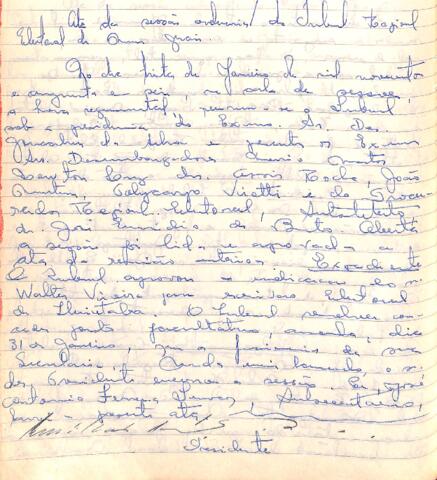 Ata da sessão ordinária do Tribunal Regional
Eleitoral de Minas Gerais.
No dia trinta de Janeiro de mil novecentos
e cinquenta e seis, na sala de sessões,
a hora regimental, reuniu-se o Tribunal,
sob a presidência do Exmo. Sr. Des.
da Silva e presentes os Exmos
Srs. Desembargadores Martins
Cruz, Drs. Assis Rocha, João
Martins, Polycarpo Viotti e do Procu-
rador Regional Eleitoral, Substituto
dr. José de Brito. Aberta
a sessão foi lida e aprovada a
ata da reunião anterior. Expediente
O Tribunal aprovou a indicação do sr.
Walter Vieira para escrivão eleitoral
de Ituiutaba. O Tribunal resolveu con-
ponto facultativo, amanhã, dia
31 de Janeiro, para os funcionários de sua
Secretaria. Nada mais havendo, o sr.
des. Presidente encerrou a sessão. Eu, José
Ferreira, Subsecretário,
lavrei a presente ata,
Presidente